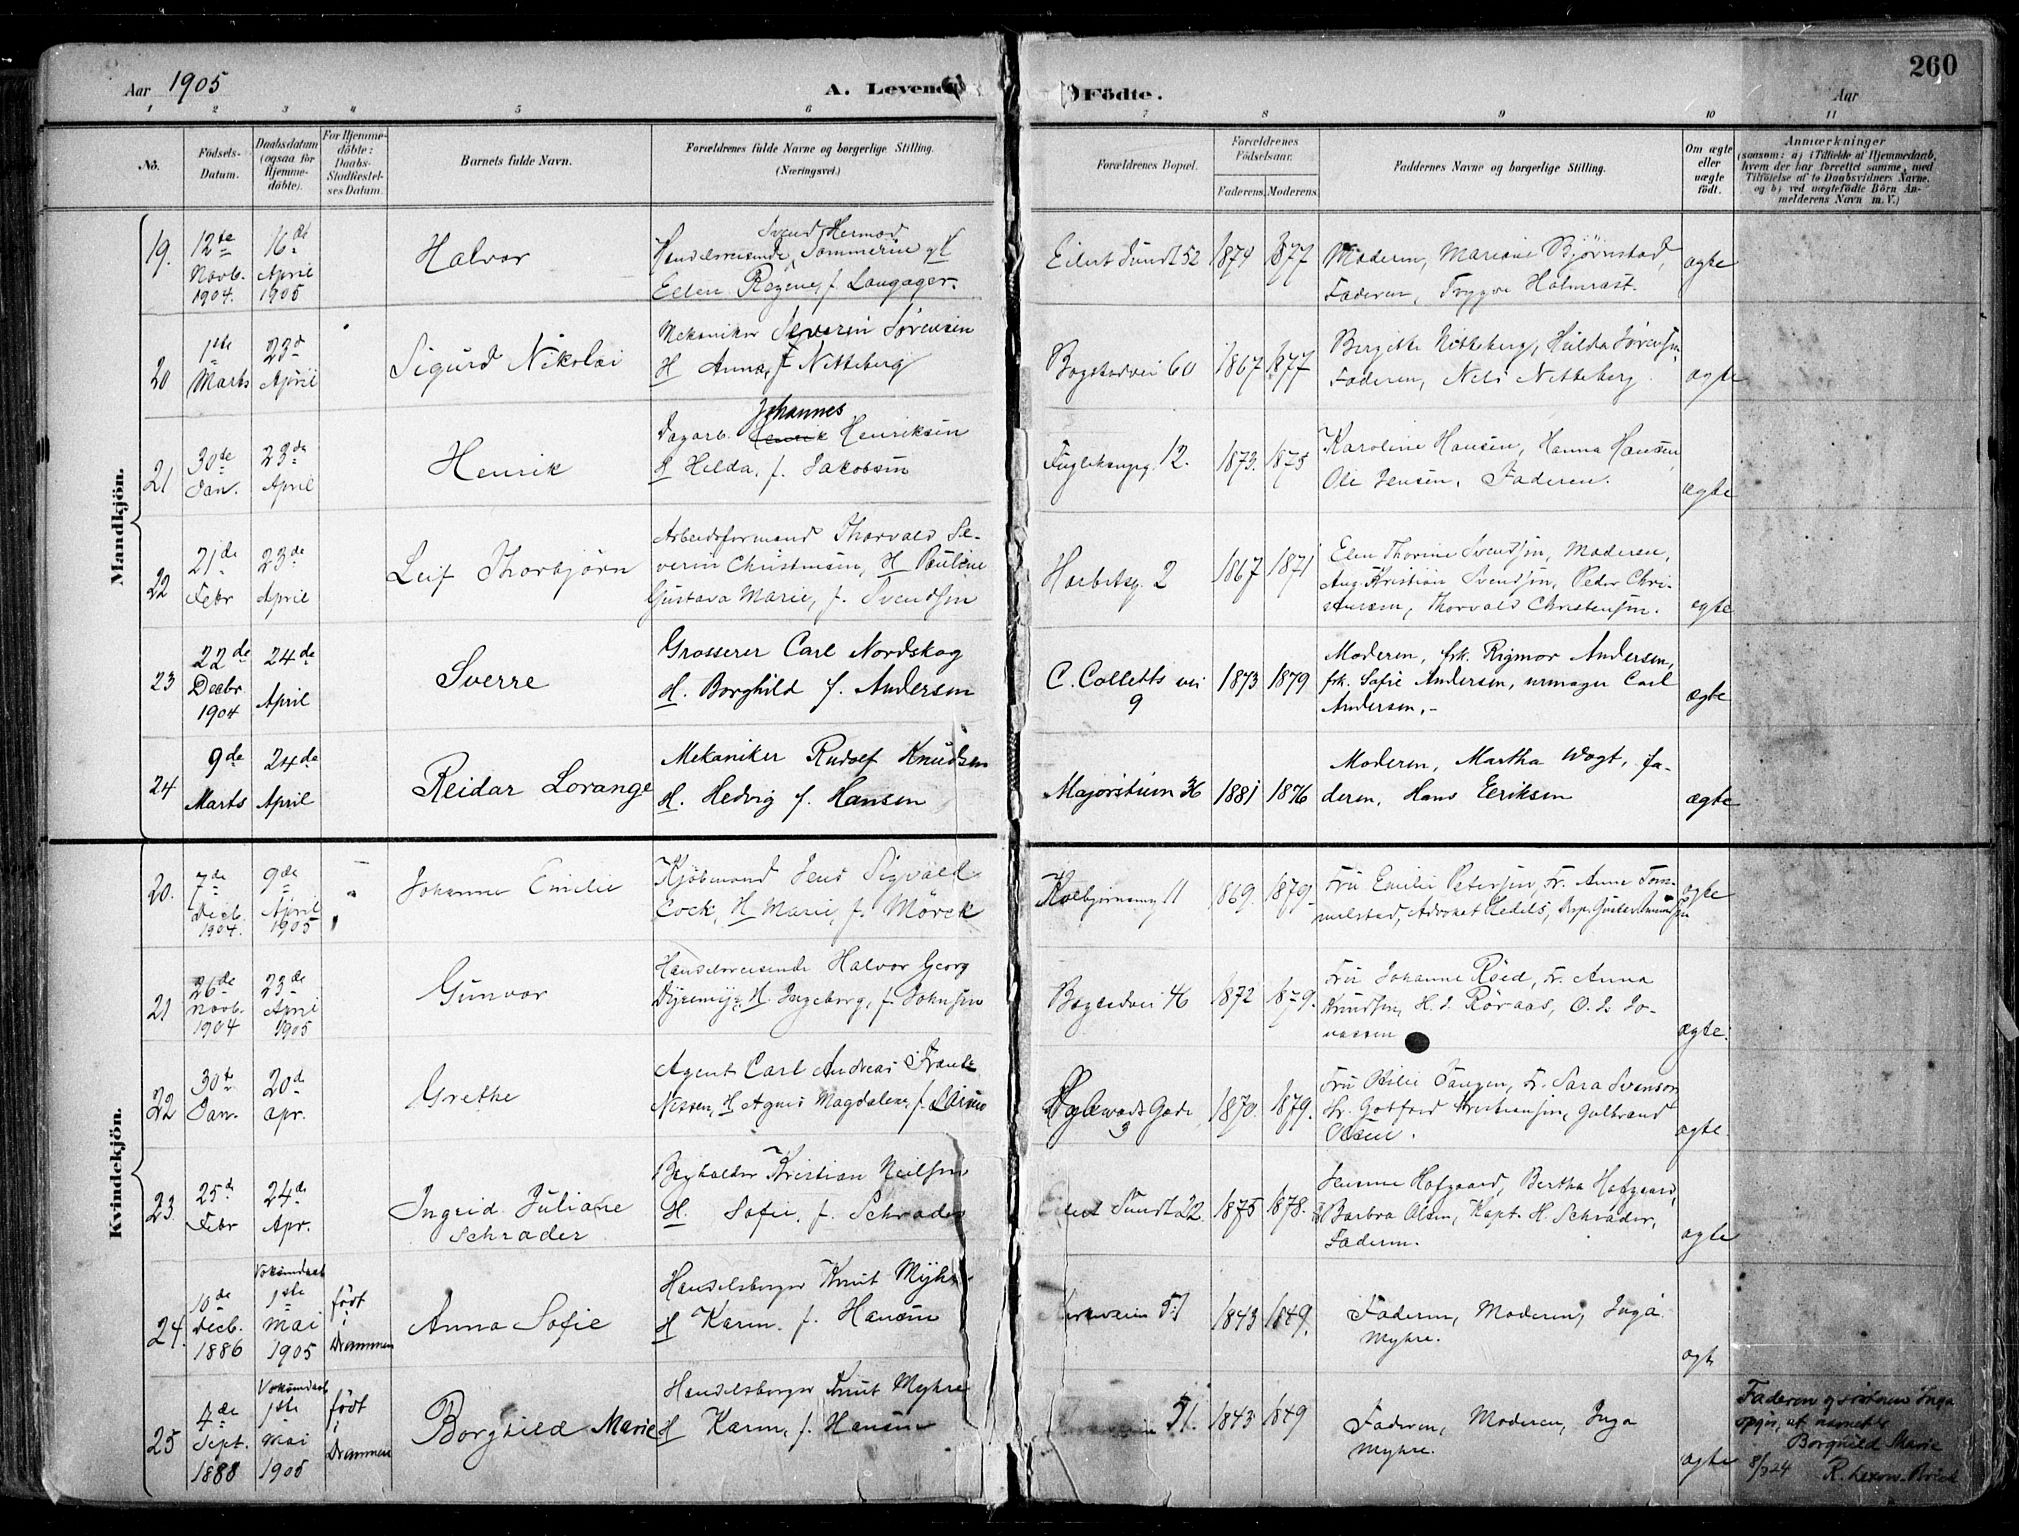 Aar 1905
A. Levende Födte.
260
Aar
1 2 3 4 5 6 7 8 9 10 11
No.
Födsels-
Datum.
Daabsdatum
(ogsaa for
Hjemme-
döbte).
For Hjemme-
döbte:
Daabs-
Stadfæstel-
ses Datum.
Barnets fulde Navn.
Forældrenes fulde Navne og borgerlige Stilling.
(Næringsvei.)
Forældrenes Bopæl.
Forældrenes
Födselsaar.
Faderens. Moderens.
Faddernes Navne og borgerlige Stilling.
Om ægte
eller
uægte
födt.
Anmærkninger
(saasom: a) i Tilfælde af Hjemmedaab,
hvem der har forrettet samme, med
Tilföielse af to Daabsvidners Navne.
og b) ved uægtefödte Börn An-
melderens Navn m. V.)
Mandkjön.
19. 12te Novb. 1904. 16de April 1905
Halvor
Svend Hermod
Handelsreisende, Sommerin og H
Ellen Regine, f. Langager.
Eilert Sundt 52 1874 1877
Moderen, Mariane Bjørnstad,
Faderen, Tryggve Holmrast.
ægte
20 1ste Marts 23d April
Sigurd Nikolai
Mekaniker Severin Sørensen
H Anna, f Nitteberg
Bogstadvei 60 1867 1877
Bergitte Nitteberg, Hulda Sørensen,
Faderen, Nels Nitteberg.
ægte
21 30de Jan. 23de April
Henrik
Johannes
Dagarb. Henrik Henriksen
H Hilda, f. Jakobsen
Fuglehaugg. 12. 1873. 1875
Karoline Hansen, Hanna Hansen,
Ole Jensen, Faderen.
ægte
22 21de Febr 23de April
Leif Thorbjørn
Arbeidsformand Thorvald Se-
verin Christensen, H Pauline
Gustava Marie, f. Svendsen
Harbitzg. 2 1867 1871
Elen Thorine Svendsen, Moderen,
Aug. Kristian Svendsen, Peder Chri-
stensen, Thorvald Christensen.
ægte
23 22de Decbr 1904 24de April
Sverre
Grosserer Carl Nordskog
H. Borghild f. Andersen
C. Colletts vei
9
1873 1879
Moderen, frk. Rigmor Andersen,
frk. Sofie Andersen, urmager Carl
Andersen.-
ægte
24 9de Marts 24de April
Reidar Lorange
Mekaniker Rudolf Knudsen
H. Hedvig f. Hansen
Majorstuen 36 1881 1876
Moderen, Martha Vogt, fa-
deren, Hans Eeriksen
ægte
Kvindekjön.
20. 7de Decb. 1904. 9de April 1905
Johanne Emilie
Kjøbmand Jens Sigvald
Cock, H Marie, f. Mörck
Kolbjørnsvg 11 1869. 1879
Fru Emilie Petersen, Fr. Anne Tom-
melstad, Advokat Hedels,
ægte
21 26de Novb. 1904 23de April 1905
Gunvor
Handelsreisende Halvor Georg
H. Ingeborg, f. Johnsen
46 1872 1879.
Fru Johanne Röed, Fr. Anna
Knudsen, H. J. Röraas, O. J. Jo-
nassen
ægte.
22 30te Jan. 20d apr.
Grethe
Agent Carl Andreas Frantz
Nissen, H Agnes Magdalene, f.
Gade
3
1870. 1879.
Fru Tangen, Fr. Sara Svenson,
Hr. Gotfred Kristiansen, Gulbrand
Olsen.
ægte.
23. 25d Febr 24de Apr.
Ingrid Juliane
Schrader
Boghalder Kristian Neilsen
H. Sofie, f. Schrader
Sundt 22 1875 1878.
Hofgaard, Bertha Hofgaard,
Barbra Olsen, Kapt. H. Schrader,
Faderen.
ægte
24. 10de Decb. 1886 Voksendaab 1ste Mai 1905 født i Drammen
Anna Sofie
Handelsborger Knut Myhre
H Karen. f. Hansen
51 1843 1849.
Faderen, Moderen, Inga
Myhre.
ægt
25 4de Sept. 1888 Voksendaab 1ste Mai 1905 født i Drammen
Borghild Marie
Handelsborger Knut Myhre
H Karen, f. Hansen
51. 1843 1849
Faderen, Moderen, Inga
Myhre.
ægte
Faderen og søsteren Inga
opgir, at navnet er
Borghild Marie
R.